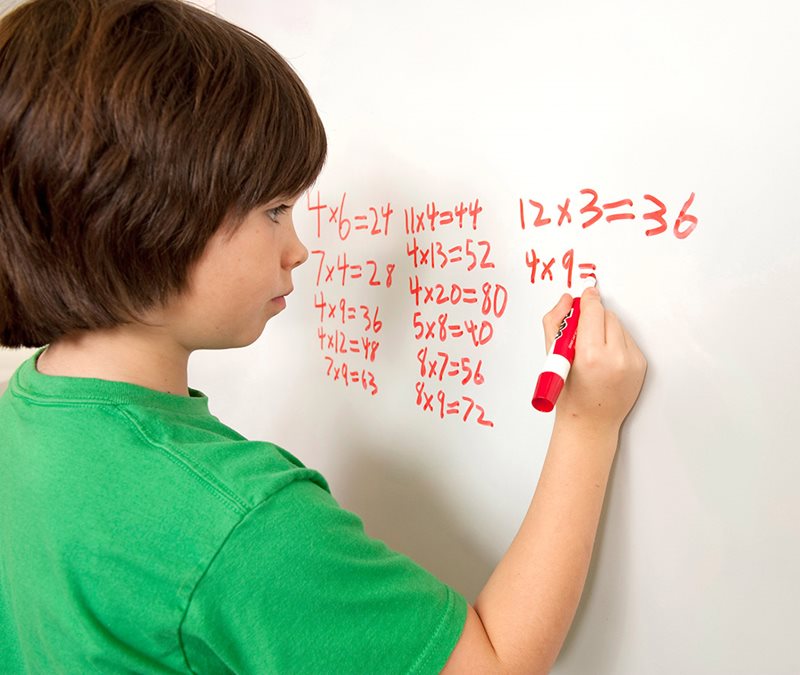 4×6=24
7×4=28
4×9=36
4×12=48
7×9=63
11×4=44
4×13=52
4×20=80
5×8=40
8×7=56
8×9=72
12×3=36
4×9=